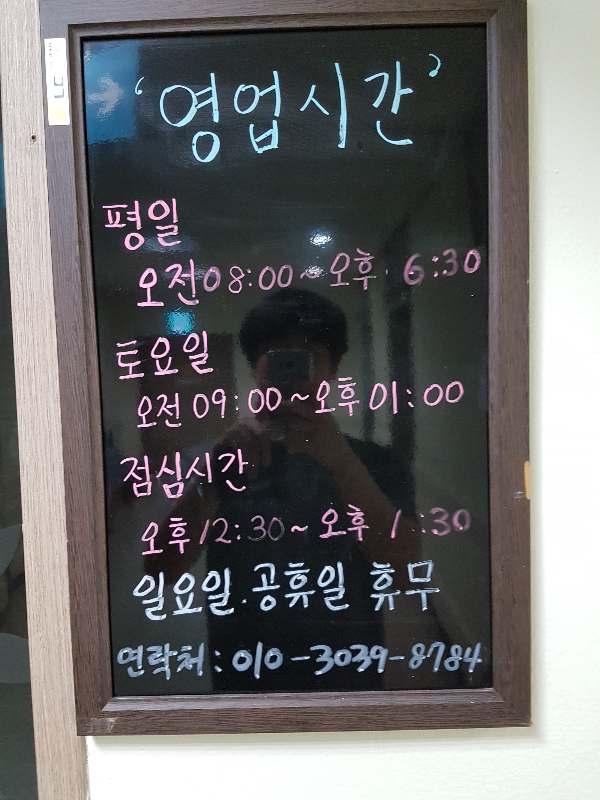 '영업시간'
평일
오전 08:00 ~ 오후 6:30
토요일
오전 09:00 ~ 오후 01:00
점심시간
오후 12:30 ~ 오후 1:30
일요일.공휴일 휴무
연락처 : 010-3039-8784